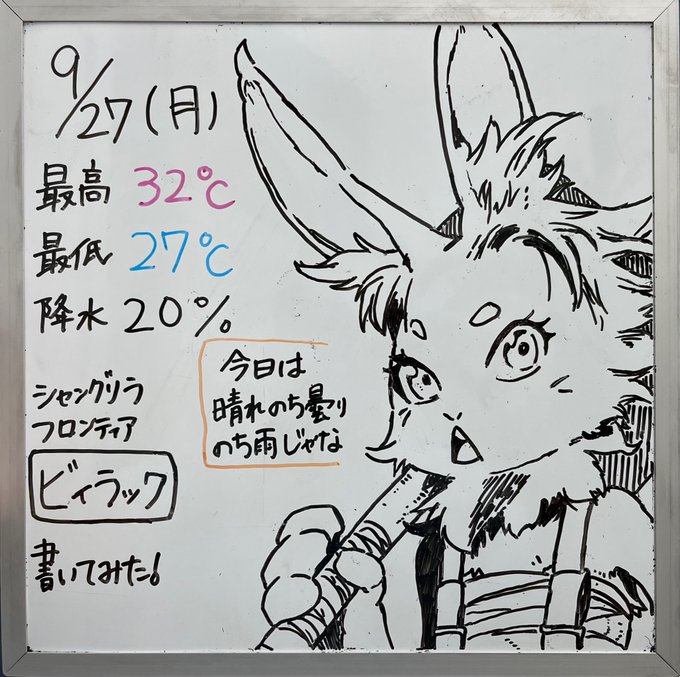 9/27(月)
最高 32℃
最低 27℃
降水 20%
今日は
晴れのち曇り
のち雨じゃな
シャングリラ
フロンティア
ビィラック
書いてみた!